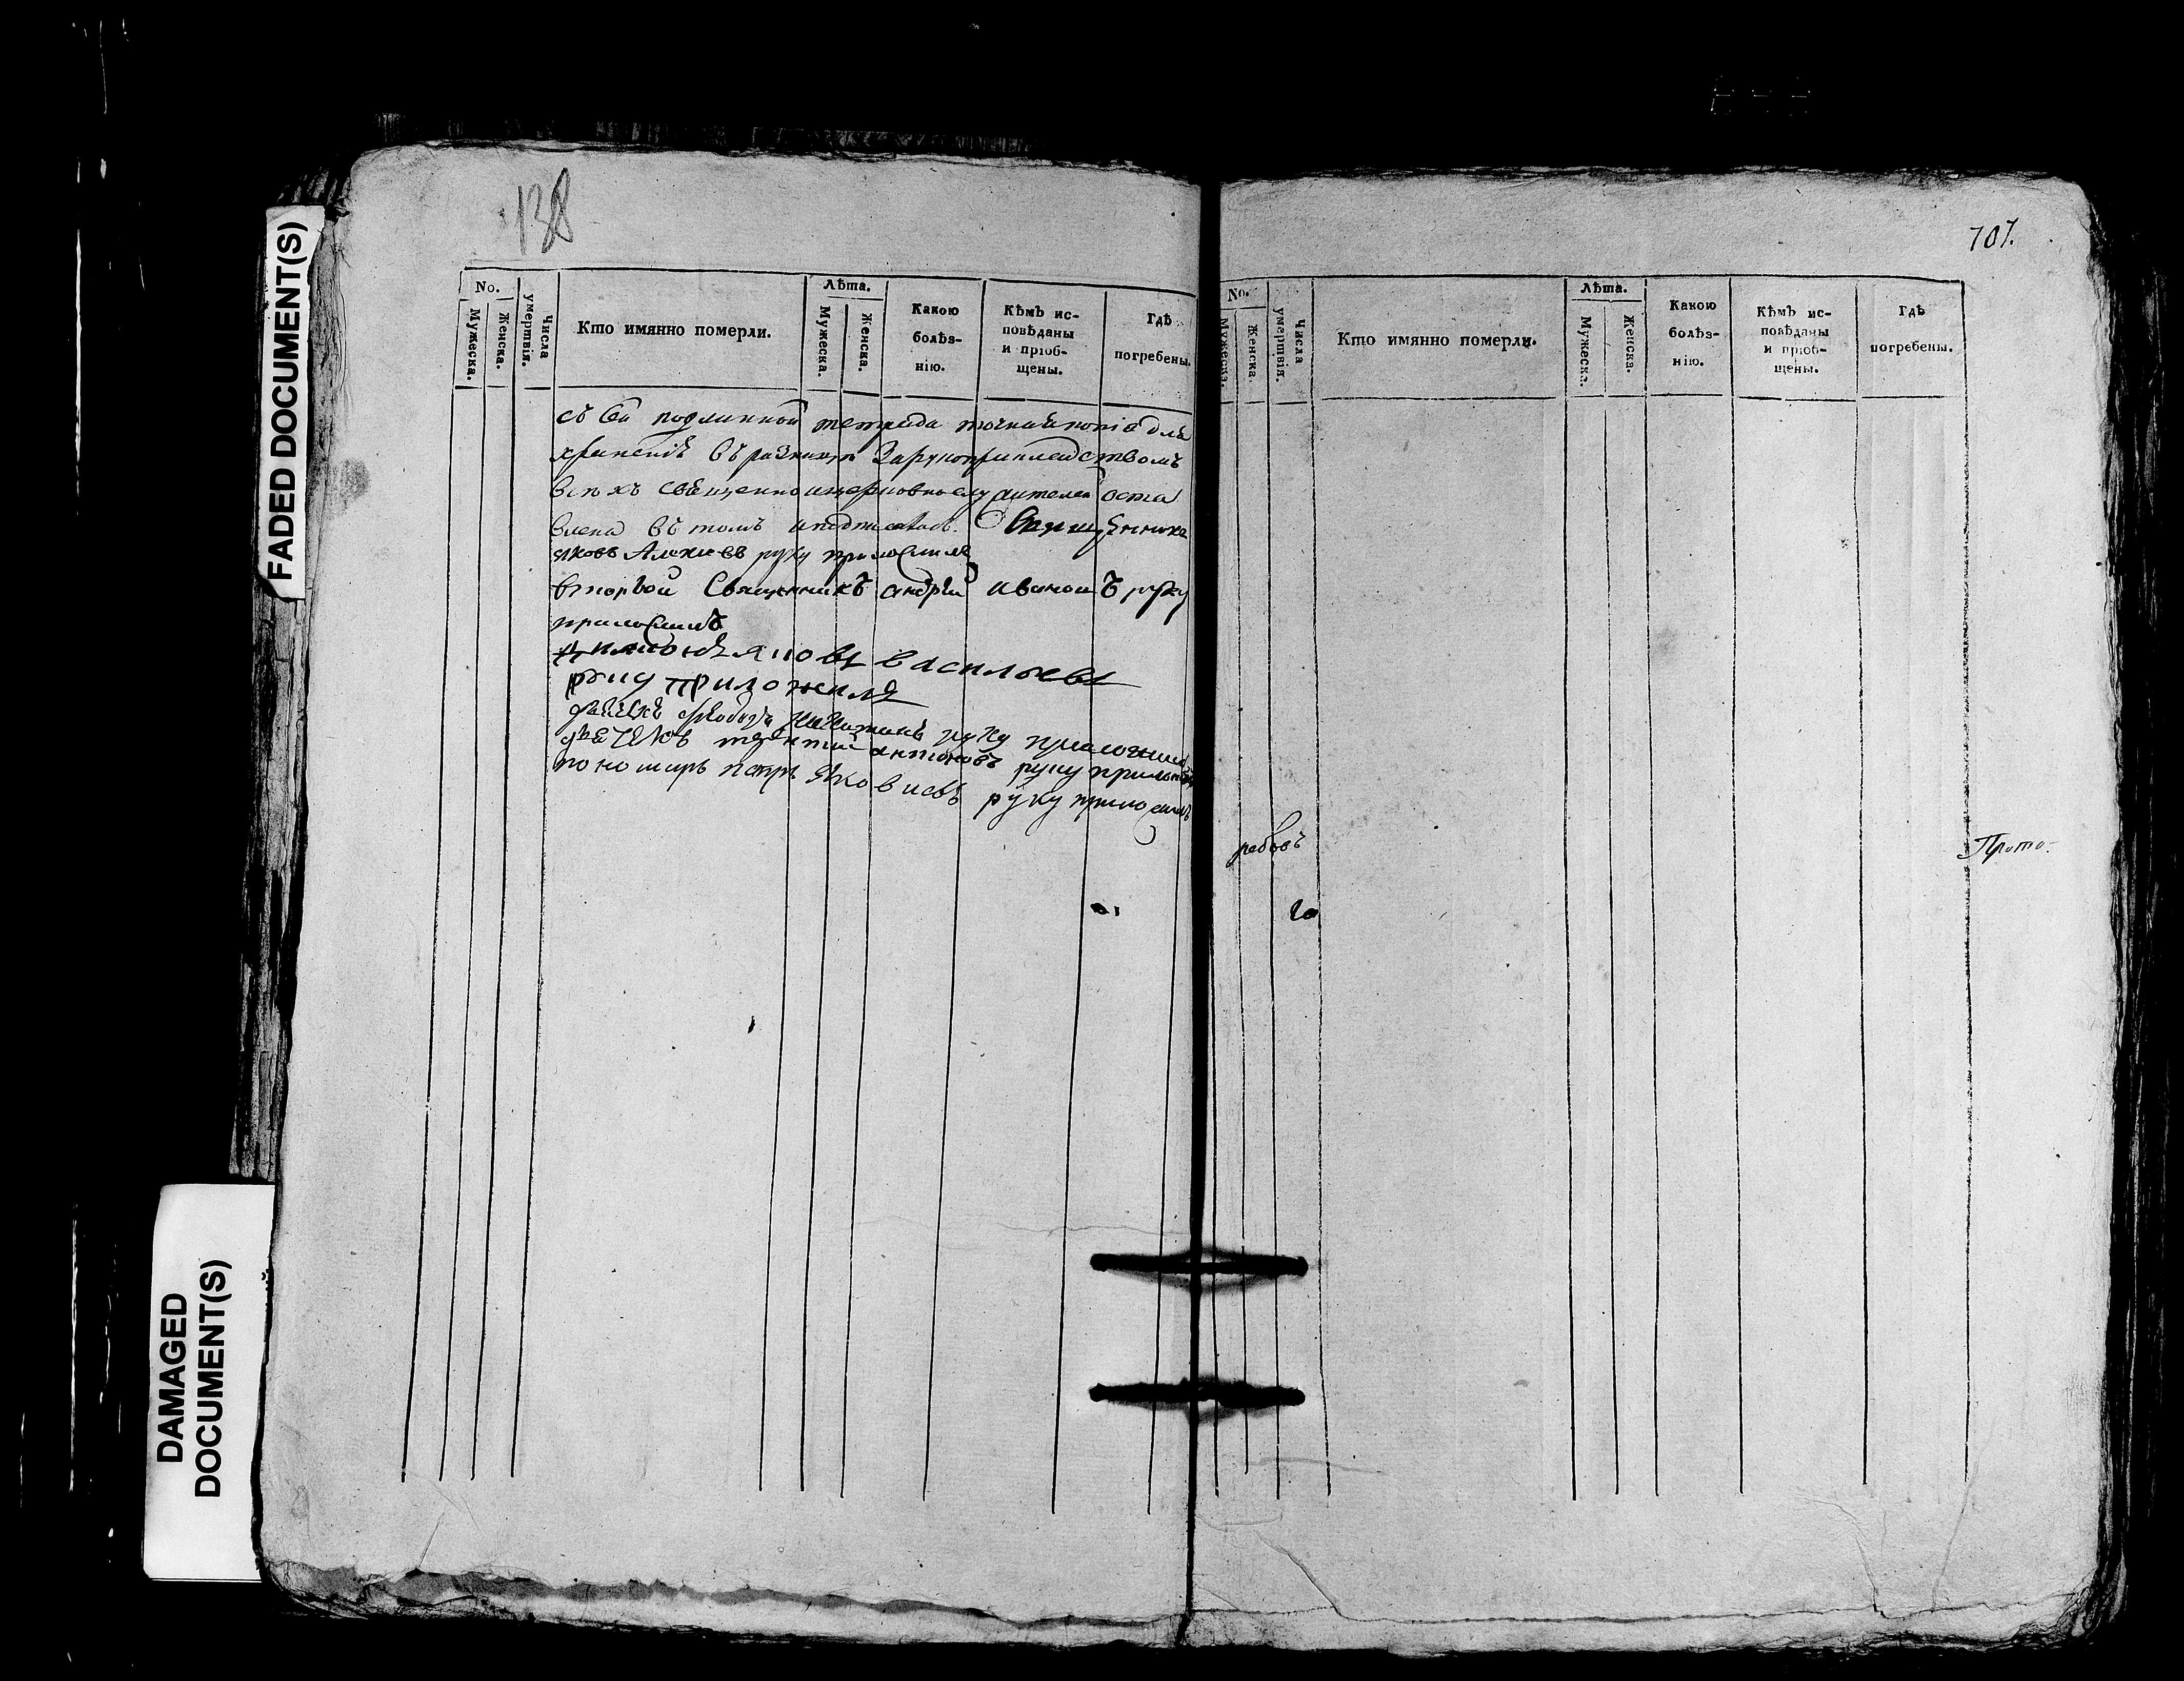 FADED DOCUMENT(S)
DAMAGED
DOCUMENT(S)
138
No.
Мужеска.
Женска.
Числа
умертвія.
Кто имянно померли.
Лѣта.
Мужеска.
Женска.
Какою
болѣз-
нію.
Кѣмъ ис-
повѣданы
и пріоб-
щены.
Гдѣ
погребены.
съ сей подлинной тетради точная копіа для
храненія въ ризницѣ зарукоприкледствомъ
всѣхъ священноицерковнослужителей оста
влена въ томъ и подписались. Священникъ
яковъ Алексѣевъ руку приложилъ
второй Священникъ андрей ивановъ руку
приложилъ
диаконъ яковъ васильевъ
руку приложилъ
дьячекъ руку приложилъ
дьячекъ терентий антоновъ руку приложилъ
пономарь петръ яковлевъ руку приложилъ
701.
No.
Мужеска.
Женска.
Числа
умертвія.
Кто имянно померли.
Лѣта.
Мужеска.
Женска.
Какою
болѣз-
нію.
Кѣмъ ис-
повѣданы
и пріоб-
щены.
Гдѣ
погребены.
Прото-